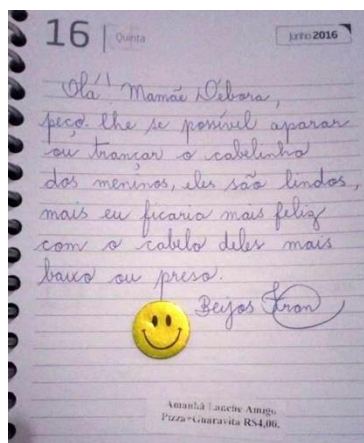 16 Quinta Junho 2016
Olá! Mamãe Débora,
peço-lhe se possível aparar
ou trançar o cabelinho
dos meninos, eles são lindos,
mais eu ficaria mais feliz
com o cabelo deles mais
baixo ou preso.
Beijos Fran
Amanhã Lanche Amigo
Pizza+Guaravita R$4,00.